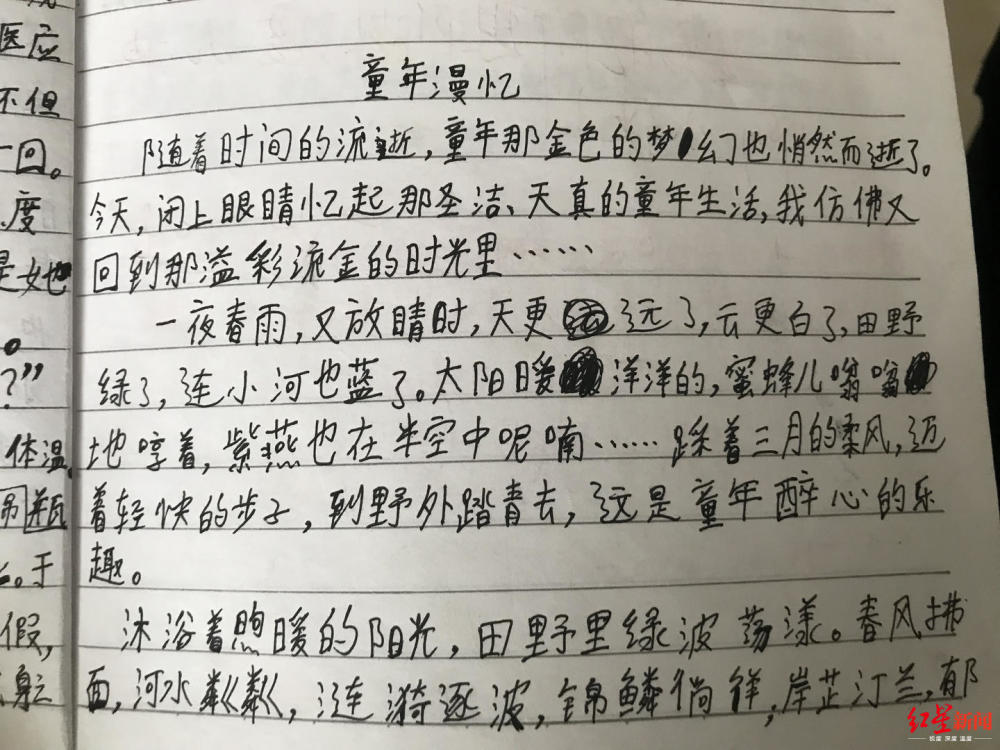 医应
不但
一回。
度
是她
。
？”
体温,
吊瓶
。于
假，
童年漫忆
随着时间的流逝，童年那金色的梦幻也悄然而逝了。
今天，闭上眼睛忆起那圣洁、天真的童年生活，我仿佛又
回到那溢彩流金的时光里……
一夜春雨，又放晴时，天更远了，云更白了，田野
绿了，连小河也蓝了。太阳暖洋洋的，蜜蜂儿嗡嗡
地哼着，紫燕也在半空中呢喃……踩着三月的柔风，迈
着轻快的步子，到野外踏青去，这是童年醉心的乐
趣。
沐浴着煦暖的阳光，田野里绿波荡漾。春风拂
面，河水粼粼，涟漪逐波，锦鳞徜徉，岸芷汀兰，郁
红星新闻
态度 深度 温度